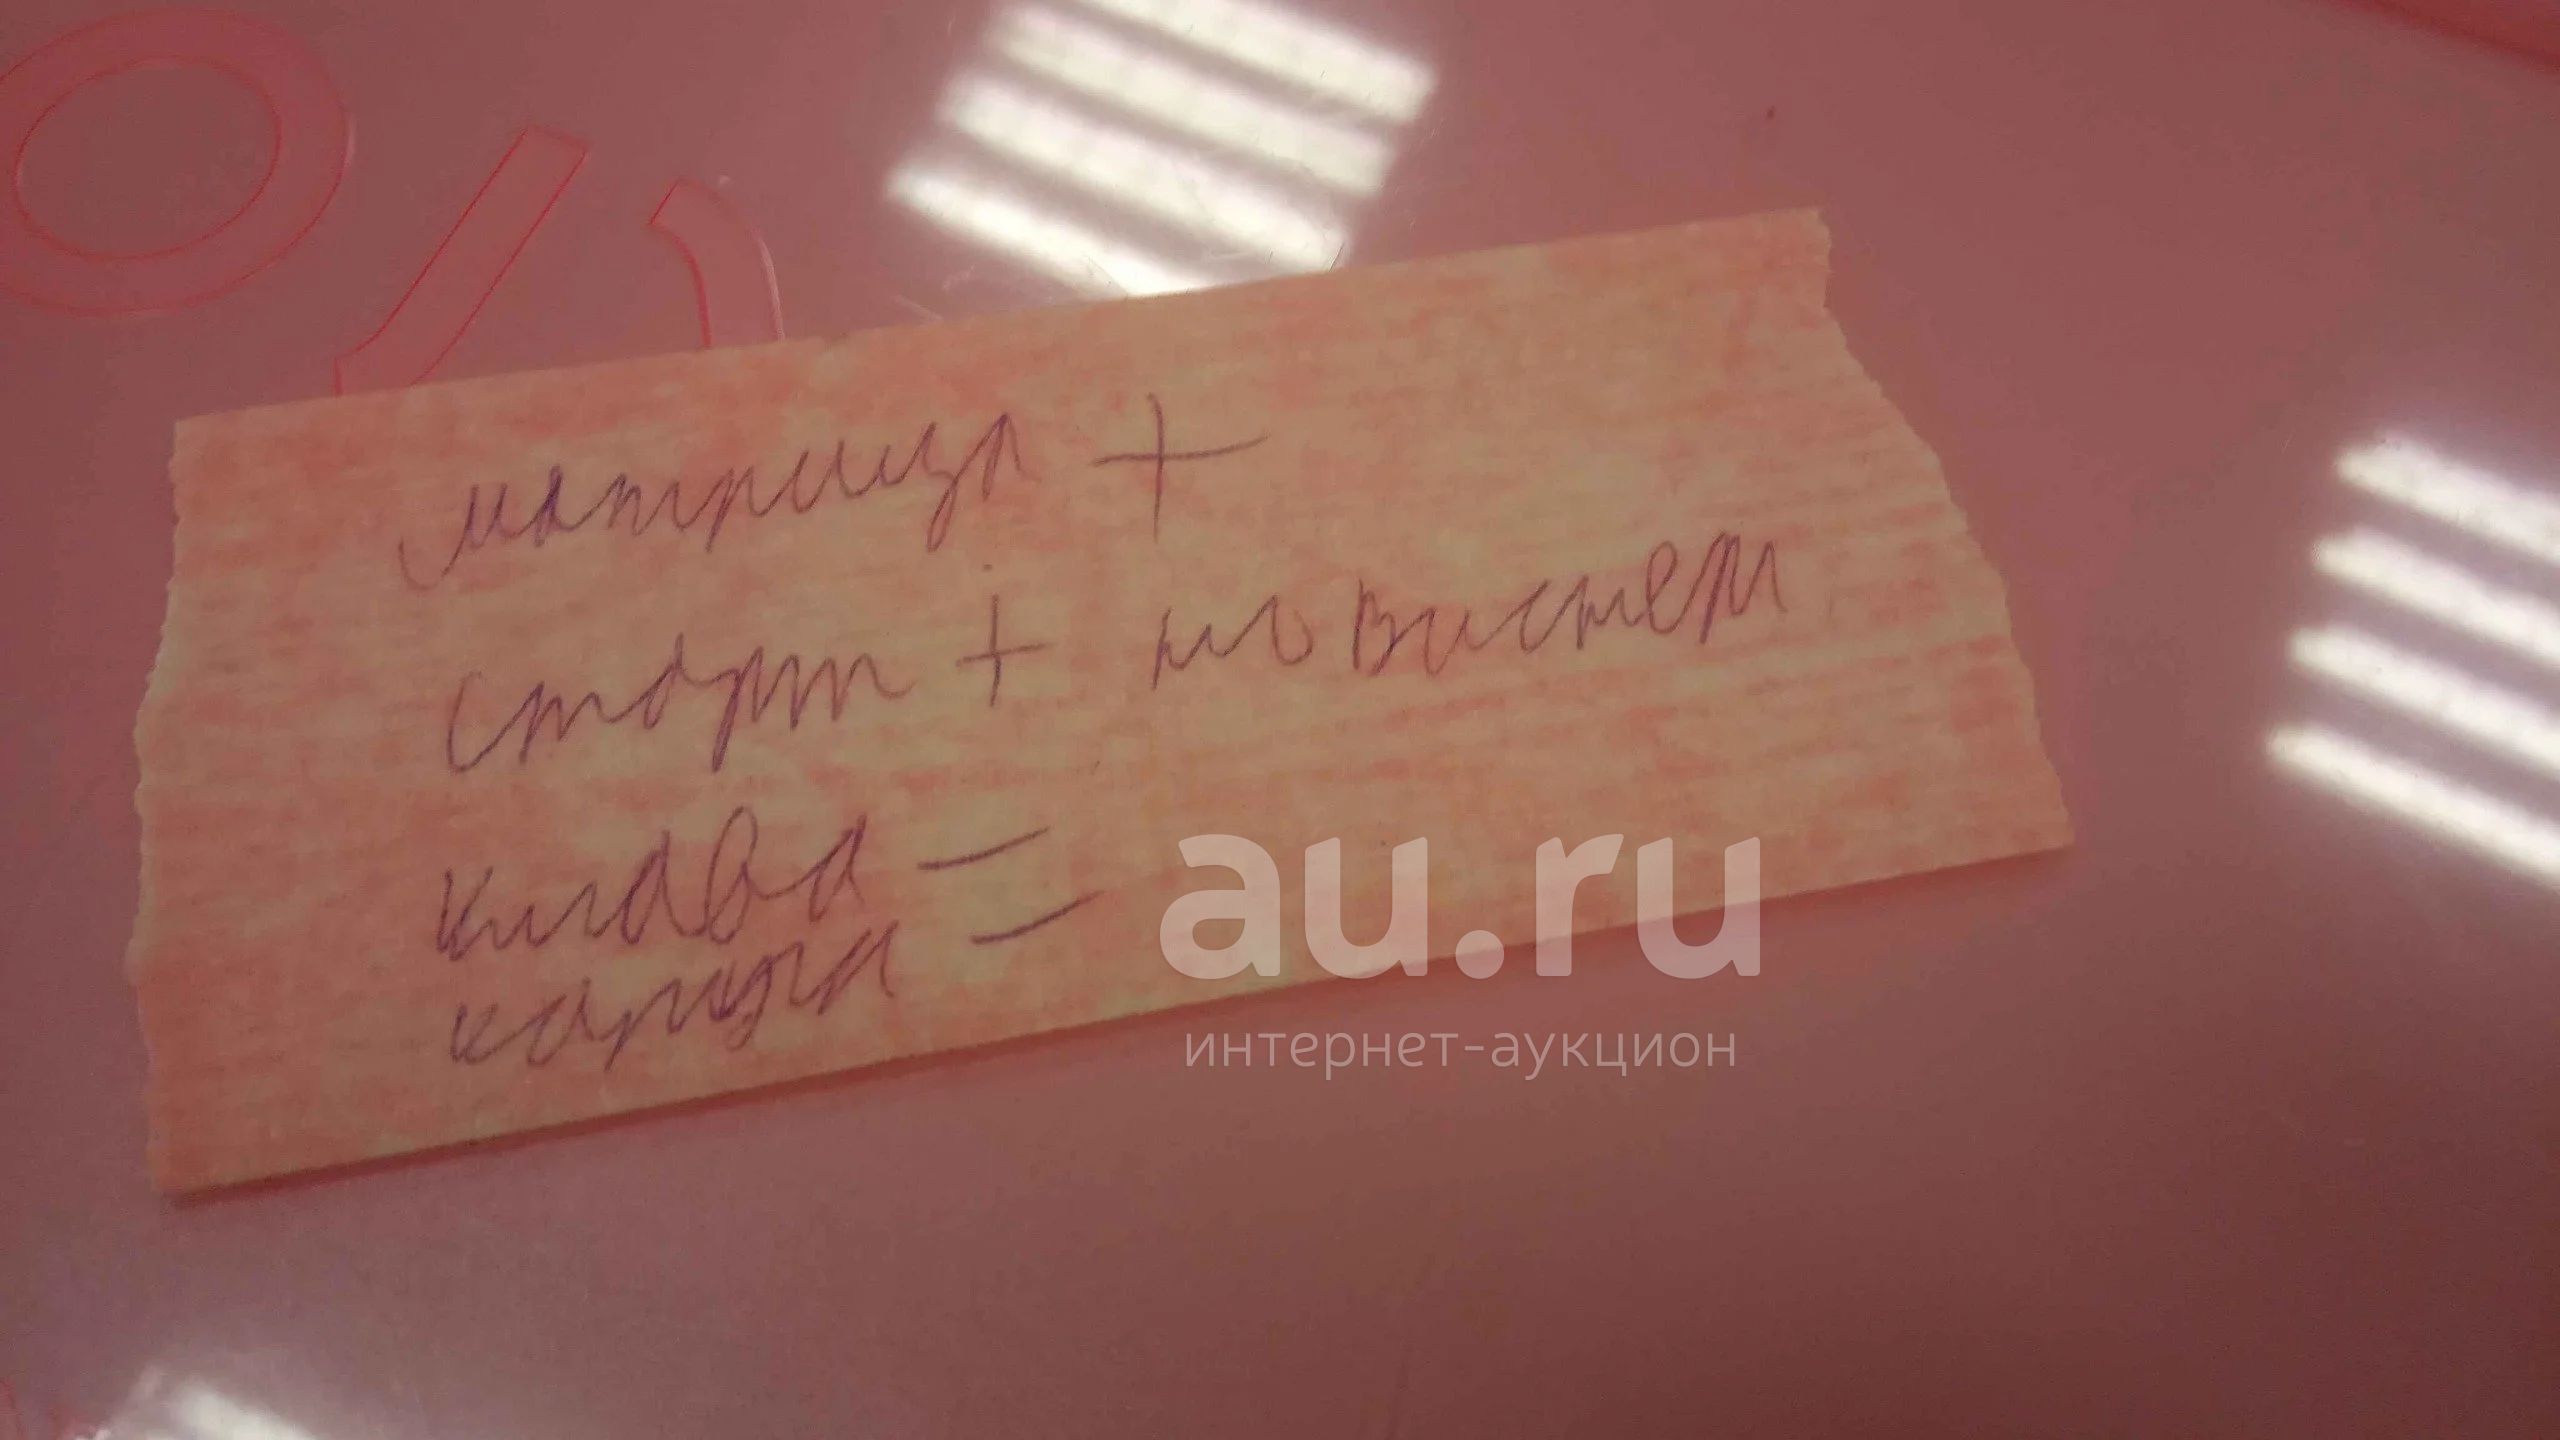 матрица +
старт + но виснет
клава -
корпус -
au.ru
интернет-аукцион